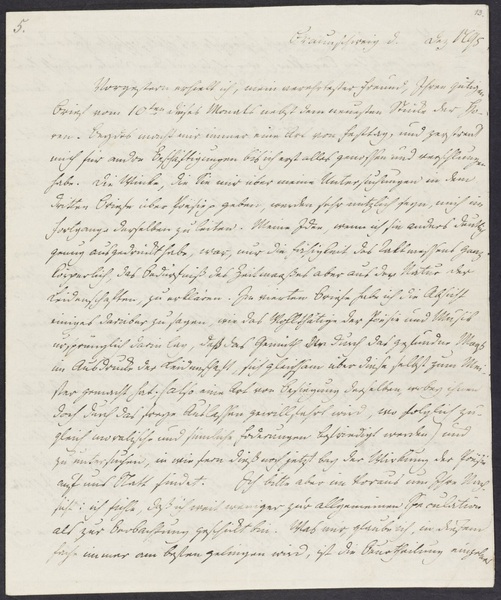 5.
13.
Braunschweig d. Dez 1895
Vorgestern erhielt ich, mein verehrtester Freund, Ihren gütigen
Brief vom 10ten dieses Monats nebst dem neuesten Stücke der Ho-
ren. Beydes macht mir immer eine Art von Festtag, und zerstreut
mich für andre Beschäftigungen bis ich erst alles genossen und verschlungen
habe. Die Winke, die Sie mir über meine Untersuchungen in dem
dritten Briefe über Poesie p geben, werden sehr nützlich seyn, mich im
Fortgange derselben zu leiten. Meine Idee, wenn ich sie anders deutlich
genug ausgedrückt habe, war, nur die Fähigkeit des Taktmessens ganz
körperlich, das Bedürfniß des Zeitmaaßes aber aus der Natur der
Leidenschaften, zu erklären. Im vierten Briefe habe ich die Absicht
einiges darüber zu sagen, wie das Wohlthätige der Poesie und Musik
ursprünglich darin lag, daß das Gemüth durch das gefundne Maaß
im Ausdrucke der Leidenschaft, sich gleichsam über diese selbst zum Mei-
ster gemacht hat: also eine Art von Besiegung derselben, wobey ihnen
doch durch das freye Auslassen gewillfahrt wird, wo folglich zu-
gleich moralische und sinnliche Foderungen befriedigt werden; und
zu untersuchen, in wie fern dieß noch jetzt bey der Wirkung der Poesie
auf uns Statt findet. Ich bitte aber im voraus um Ihre Nach-
sicht: ich fühle, daß ich weit weniger zur allgemeinen Speculation
als zur Beobachtung geschickt bin. Was mir, glaube ich, in diesem
Fache immer am besten gelingen wird, ist die Beurtheilung einzelner